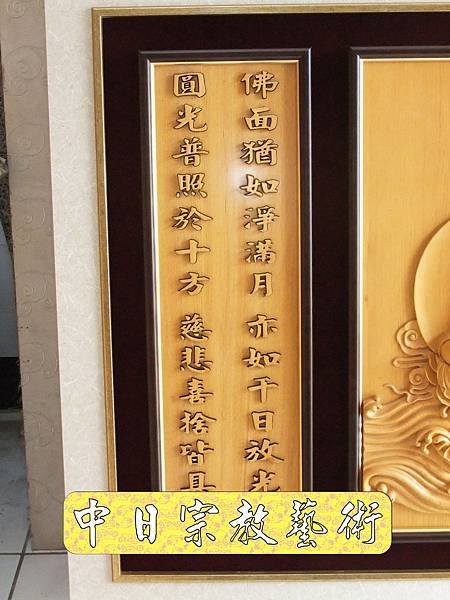 佛面猶如淨滿月 亦如千日放光
圓光普照於十方 慈悲喜捨皆具
中日宗教藝術